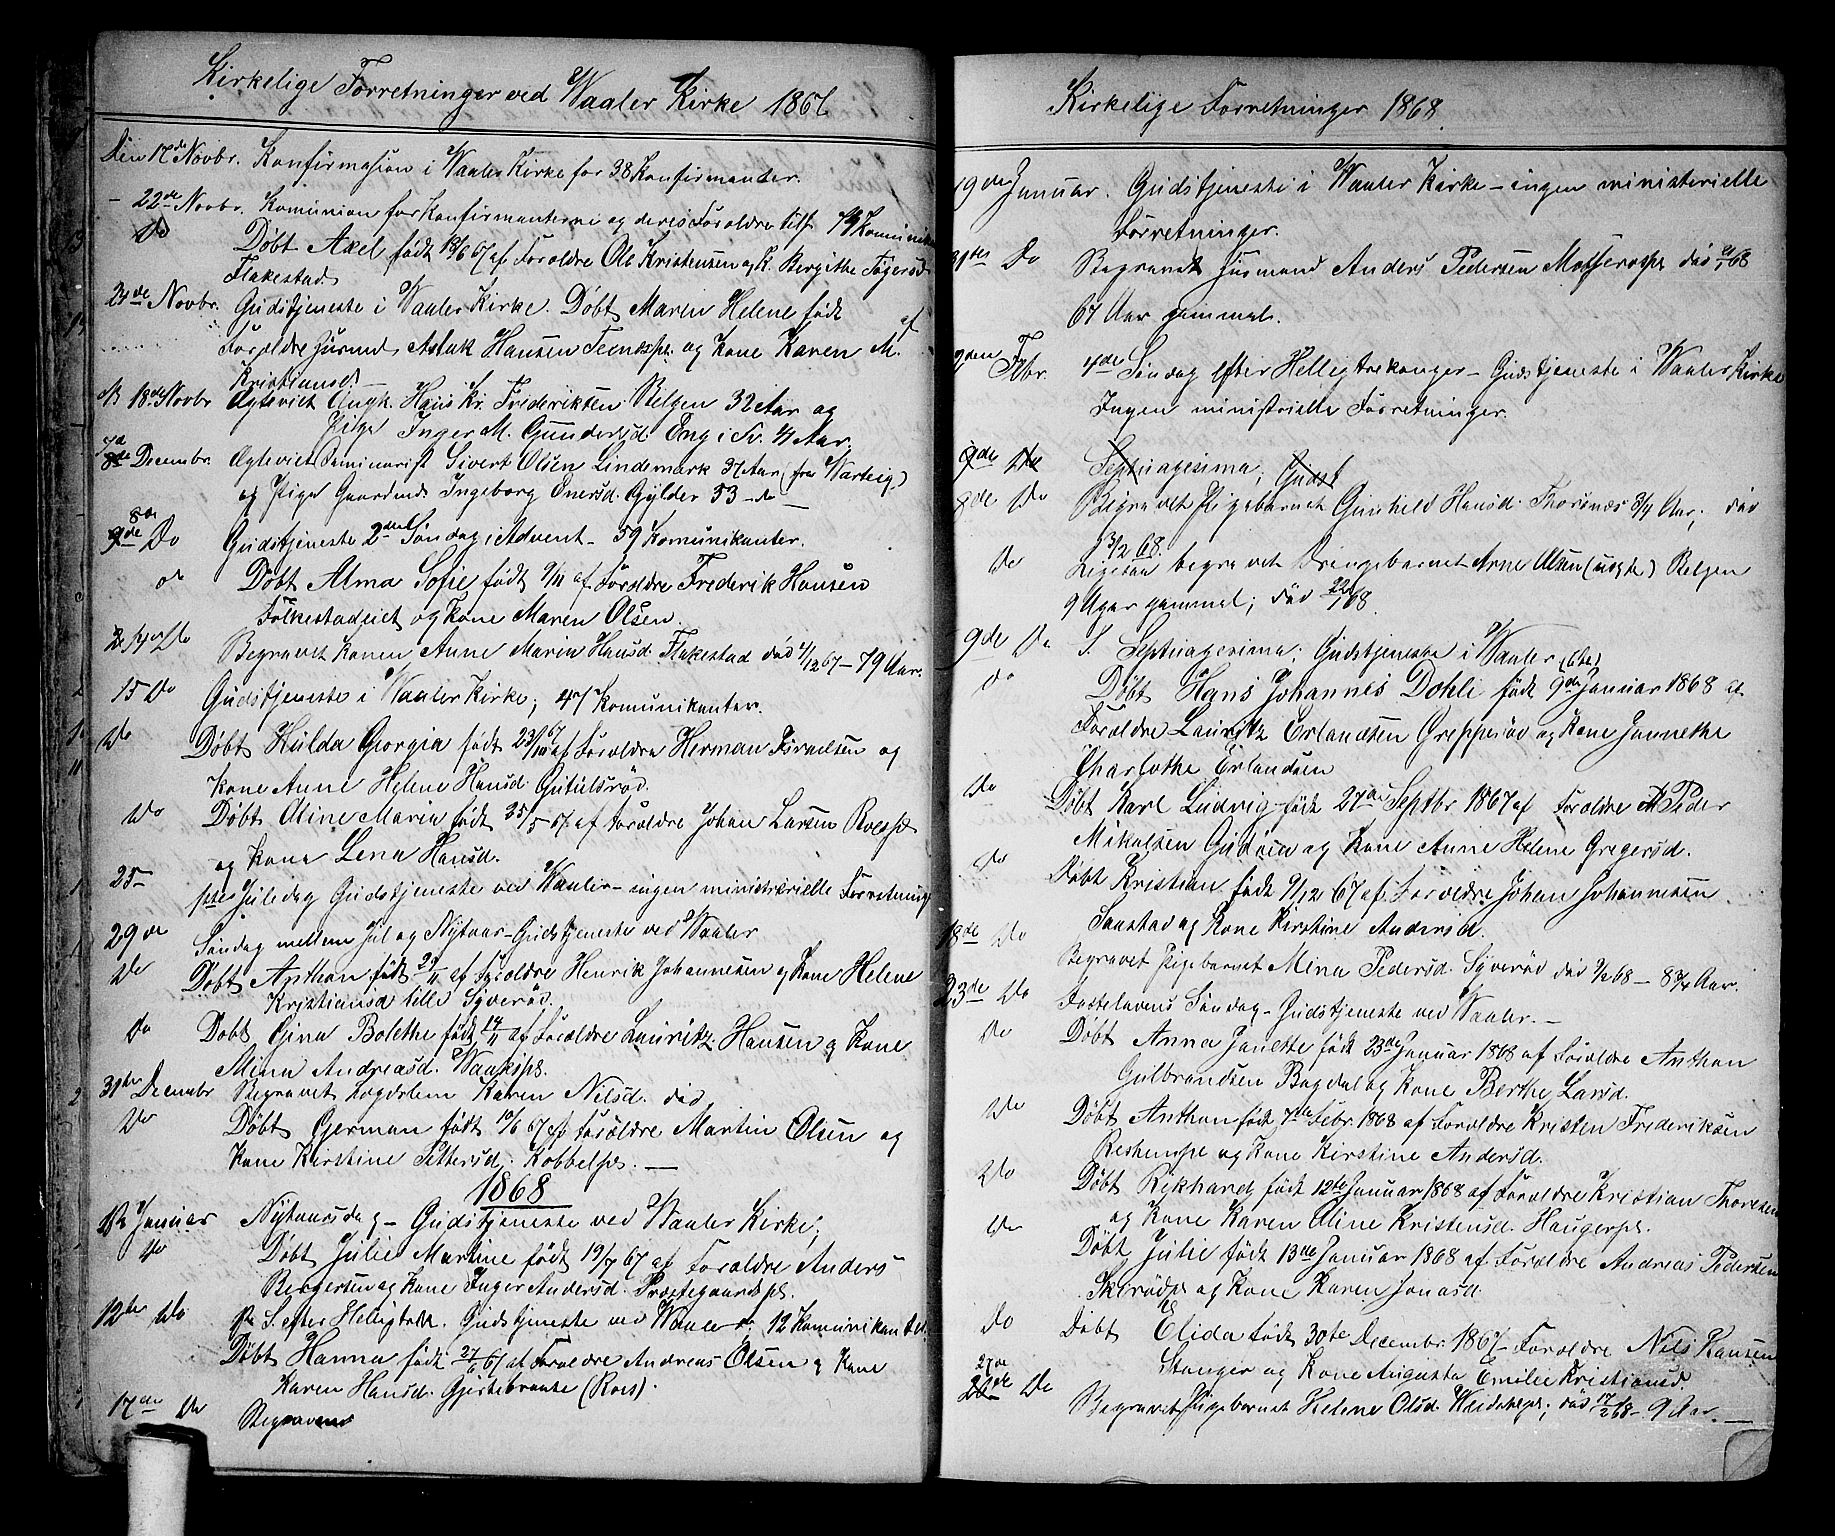 Kirkelige Forretninger ved Waaler Kirke 1867
Den 17de Novbr. Konfirmasion i Waaler Kirke for 38 Konfirmanter.
- 22de Novbr. Komunion for Konfirmanterne og deres Foroldre
Do Døbt Axel født 18/6 67 af Foroldre Ole Kristensen og K. Bergithe
Flakestad.
24de Novbr. Gudstjeneste i Waaler Kirke. Døbt Maren Helene født af
Foroldre Hansen og Kone Karen M.
Kristiansd.
18de Novbr Hans Kr. Frederiksen Belgen 32 Aar og
Pige Inger M. Gundersd. Eng i Sv. 4 Aar.
7de Decembr. Ægteviet Seminarist Sivert Olsen Lindemark 37 Aar (fra Warteig)
og Pige Ingeborg Enersd. Gylder 53 - do
8de Do Gudstjeneste 2den Søndag i Advent - 59 Komunikanter.
do Døbt Alma Sofie født 9/11 af Foroldre Frederik Hansen
Folkestadeiet og Kone Maren Olsen.
Do Begravet Konen Anne Maria Hansd. Flakestad død 4/12 67 - 79 Aar.
15 Do Gudstjeneste i Waaler Kirke; 47 Komunikanter.
Do Døbt Hulda Georgia født 23/10 67 af Foroldre Herman Israelsen og
Kone Anne Helene Hansd. Gutulsrød.
Do Døbt Oline Maria født 25/5 67 af Foroldre Johan Larsen Rospl
og Kone Lena Hansd.
25- 1ste Juledag Gudstjeneste ved Waaler - ingen ministerielle Forretninge
29de Søndag mellem Jul og Nytaar - Gudstjeneste ved Waaler
Do Døbt Anthon født af Foroldre Henrik Johannesen og Kone Helene
Kristiansd lille Syverød.
Do Døbt Gina Bolethe født 14/11 af Foroldre Lauritz Hansen og Kone
Mina Andreasd.
31te Decembr Begravet Logdslem Karen Nilsd. død
Do Døbt German født 10/6 67 af Foroldre Martin Olsen og
Kone Kirstine Pettersd. Kobbelpl. -
1868
1ste Januar Nytaarsdag - Gudstjeneste ved Waaler Kirke;
Do Døbt Julie Martine født 19/7 67 af Foroldre Anders
Bergersen og Kone Inger Andersd. Prestegaardspl.
12te Do 1ste S. efter Helligtrek. Gudstjeneste ved Waaler
Døbt Hanna født 27/6 67 af Foroldre Andreas Olsen og Kone
Karen Hansd. Gjestebraate (Roes).
17de Do Begraven
Kirkelige Forretninger 1868
19de Januar. Gudstjeneste i Waaler Kirke - ingen ministerielle
Forretninger.
31te Do Begravet Husmand Anders Pedersen død 68
67 Aar gammel.
2den Febr. 4de Søndag efter Helligtrekonger - Gudstjeneste i Waaler Kirke
Ingen ministrielle Forretninger.
9de Do Septuagesima; Gudst
8de Do Begravet Pigebarnet Gunhild Hansd. Thorsnæs 3/4 Aar; død
3/2 68.
Do Ligesaa begravet Drengebarnet Arne Olsen (uegte) Belgen
9 Uger gammel; død 22/1 68.
9de Do S. Septuagesima; Gudstjeneste i Waaler
do Døbt Hans Johannes Dohli født 9de Januar 1868 af
Foroldre Lauritz Erlandsen Grepperød og Kone Jannethe
Charlothe Erlandsen
Do Døbt Karl Ludvig født 27de Septbr 1867 af Foroldre Peder
Mikalsen Gudøen og Kone Anne Helene Gregersd.
do Døbt Kristian født 9/12 67 af Foroldre Johan Johannesen
Sanstad og Kone Kirstine Andersd.
18de Do Begravet Pigebarnet Mina Pedersd. Syverød død 9/2 68 - 8 3/4 Aar.
23de Do Fastelavens Søndag - Gudstjeneste ved Waaler. -
Do Døbt Anna Janette født 23de Januar 1868 af Foroldre Anthon
Gulbrandsen Bagdal og Kone Berthe Larsd.
Do Døbt Anthon født 7de Febr. 1868 af Foroldre Kristen Frederiksen
og Kone Kirstine Andersd.
Do Døbt Rikhard født 12te Januar 1868 af Foroldre Kristian Thoresen
og Kone Karen Oline Kristensd. Haugerpl.
Do Døbt Julie født 13de Januar 1868 af Foroldre Andreas Pedersen
Skerødpl og Kone Karen Jonasd.
Do Døbt Elida født 30te Decembr. 1867 - Foroldre Nils Hansen
Stanger og Kone Augusta Emilie Kristiansd.
27de Do Begravet Pigebarnet Helene Olsd. død 17/2 68 - 9 Aar. -